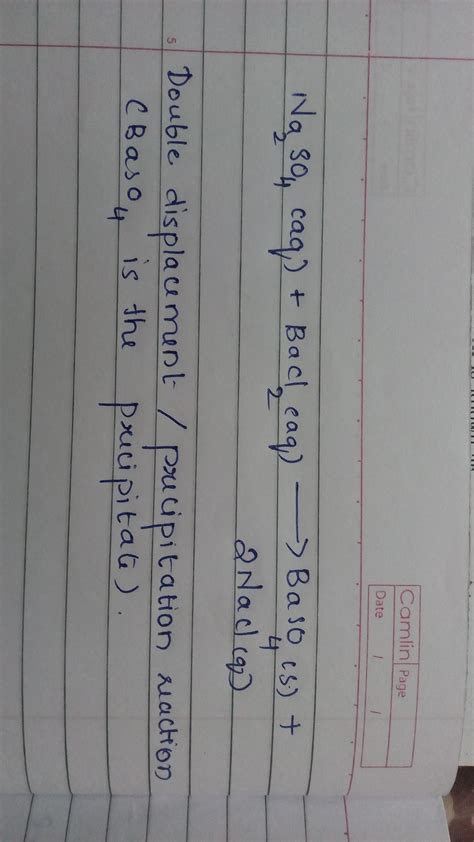 Camlin Page
Date / /
Na2SO4 (aq) + BaCl2 (aq) → BaSO4 (s) +
2NaCl (q)
Double displacement / precipitation reaction
(BaSO4 is the precipitate).
5